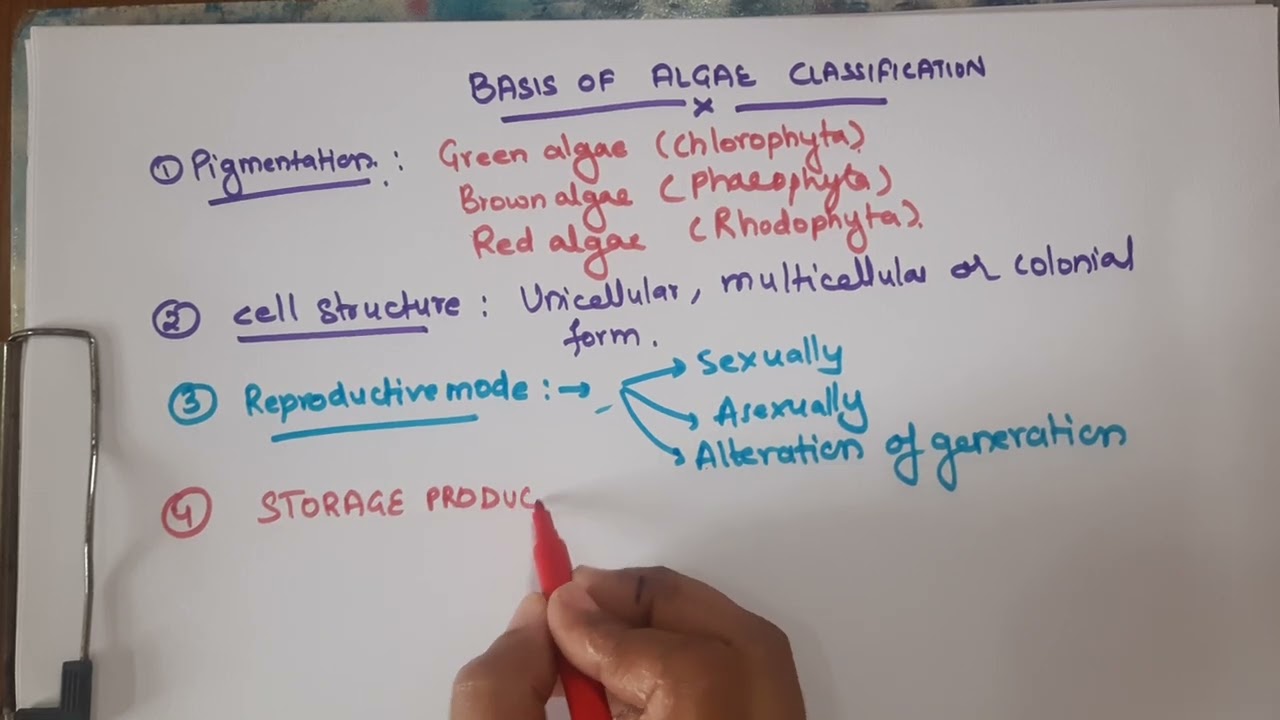 BASIS OF ALGAE CLASSIFICATION
x
① Pigmentation : Green algae (Chlorophyta)
Brown algae (Phaeophyta)
Red algae (Rhodophyta).
② cell structure : Unicellular, multicellular or colonial
form.
③ Reproductive mode : → Sexually
Asexually
Alteration of generation
④ STORAGE PRODUC